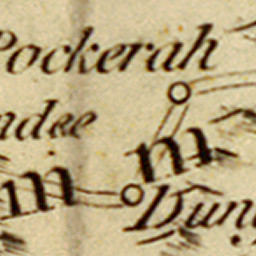 Pockerah
ndee
m m
Dung